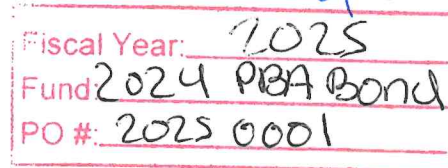 Fiscal Year: 2025
Fund: 2024 PBA Bond
PO #: 2025 0001